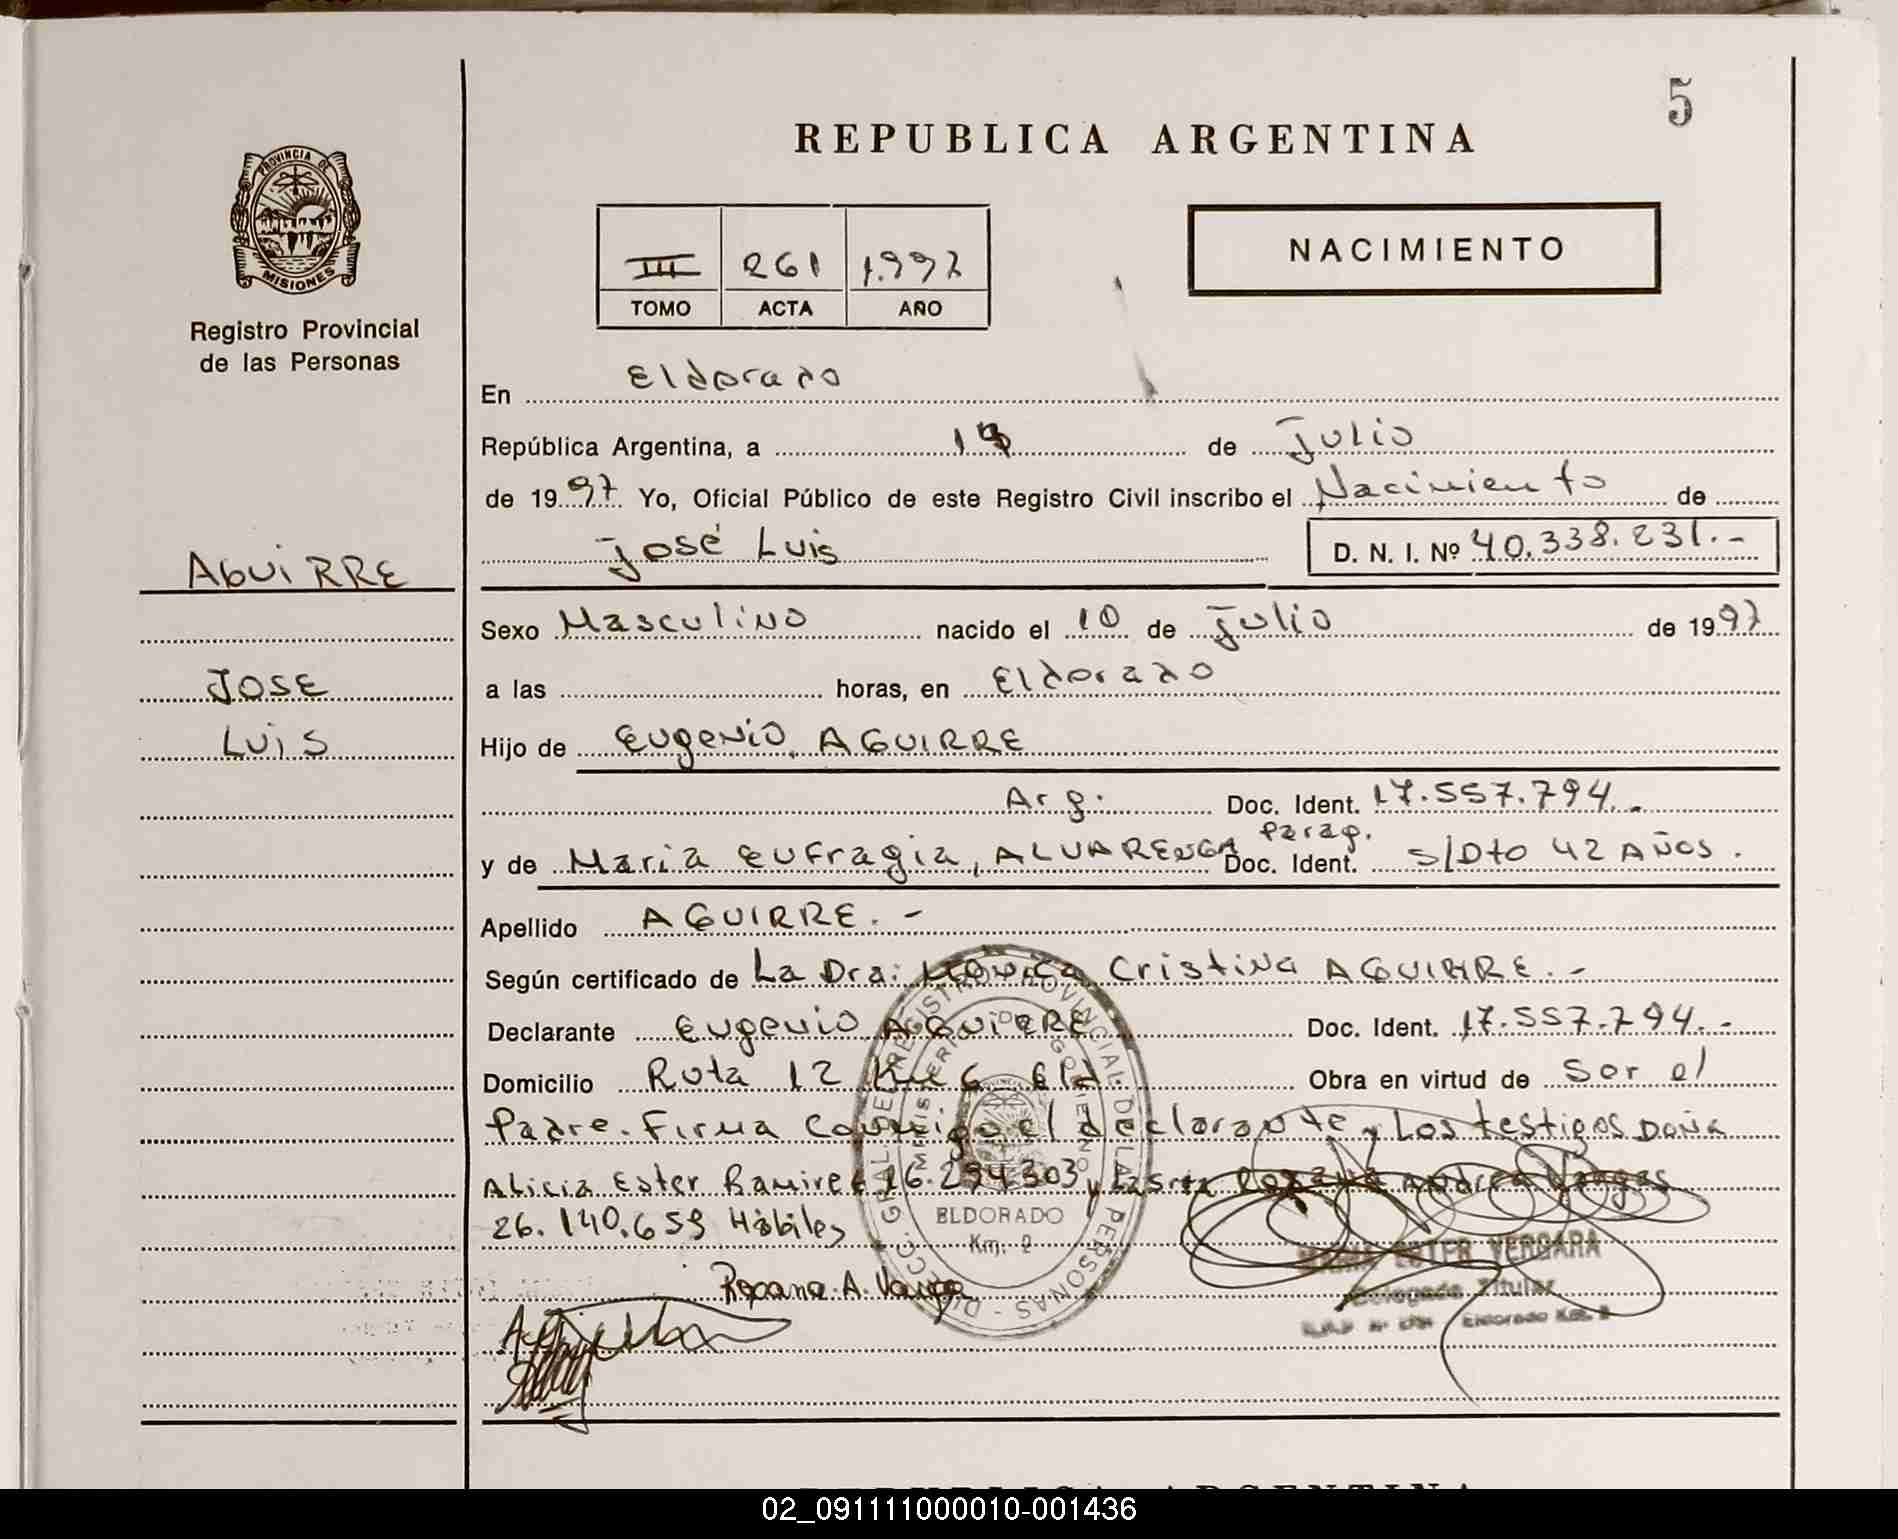 5
REPUBLICA ARGENTINA
PROVINCIA DE
MISIONES
Registro Provincial
de las Personas
III 261 1.997
TOMO ACTA AÑO
NACIMIENTO
En Eldorado
República Argentina, a de Julio
de 1997 Yo, Oficial Público de este Registro Civil inscribo el Nacimiento de
José Luis D. N. I. Nº 40.338.231.-
AGUIRRE
JOSE
LUIS
Sexo Masculino nacido el 10 de Julio de 1997
a las horas, en Eldorado
Hijo de Eugenio, AGUIRRE
Arg. Doc. Ident. 17.557.794.
y de Maria eufragia, ALVARENGA Parag. Doc. Ident. S/Dto 42 AÑOS.
Apellido AGUIRRE.-
Según certificado de La Dra: Monica Cristina AGUIRRE.-
Declarante Eugenio AGUIRRE Doc. Ident. 17.557.794.-
Domicilio Ruta 12 Km 6 Eld. Obra en virtud de Ser el
Padre. Firma Conmigo el declarante y Los testigos Doña
Alicia Ester Ramirez 16.294.303 y La Srta Rosana Andrea Vargas
26.140.659 Hábiles
DIRECC. GRAL DE REGISTRO PROVINCIAL DE LA PERSONAS
MINISTERIO DE GOBIERNO
ELDORADO
Km. 9
Rosana A. Vargas
ESTER VERGARA
Delegada Titular
Eldorado Km. 9
REPUBLICA ARGENTINA
02_091111000010-001436